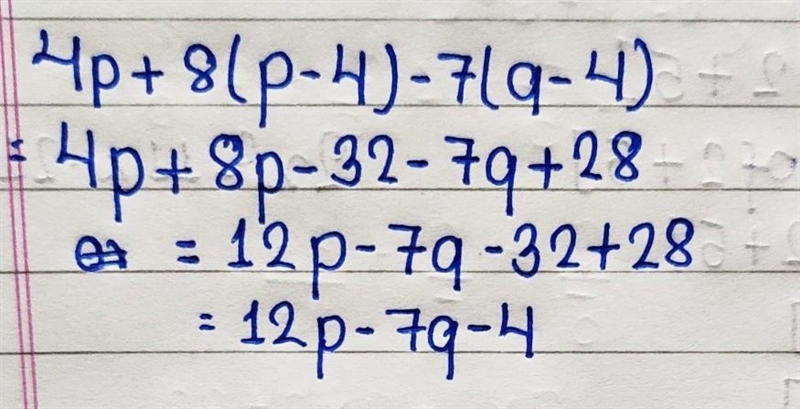 4p+8(p-4)-7(q-4)
= 4p+8p-32-7q+28
= 12p-7q-32+28
= 12p-7q-4